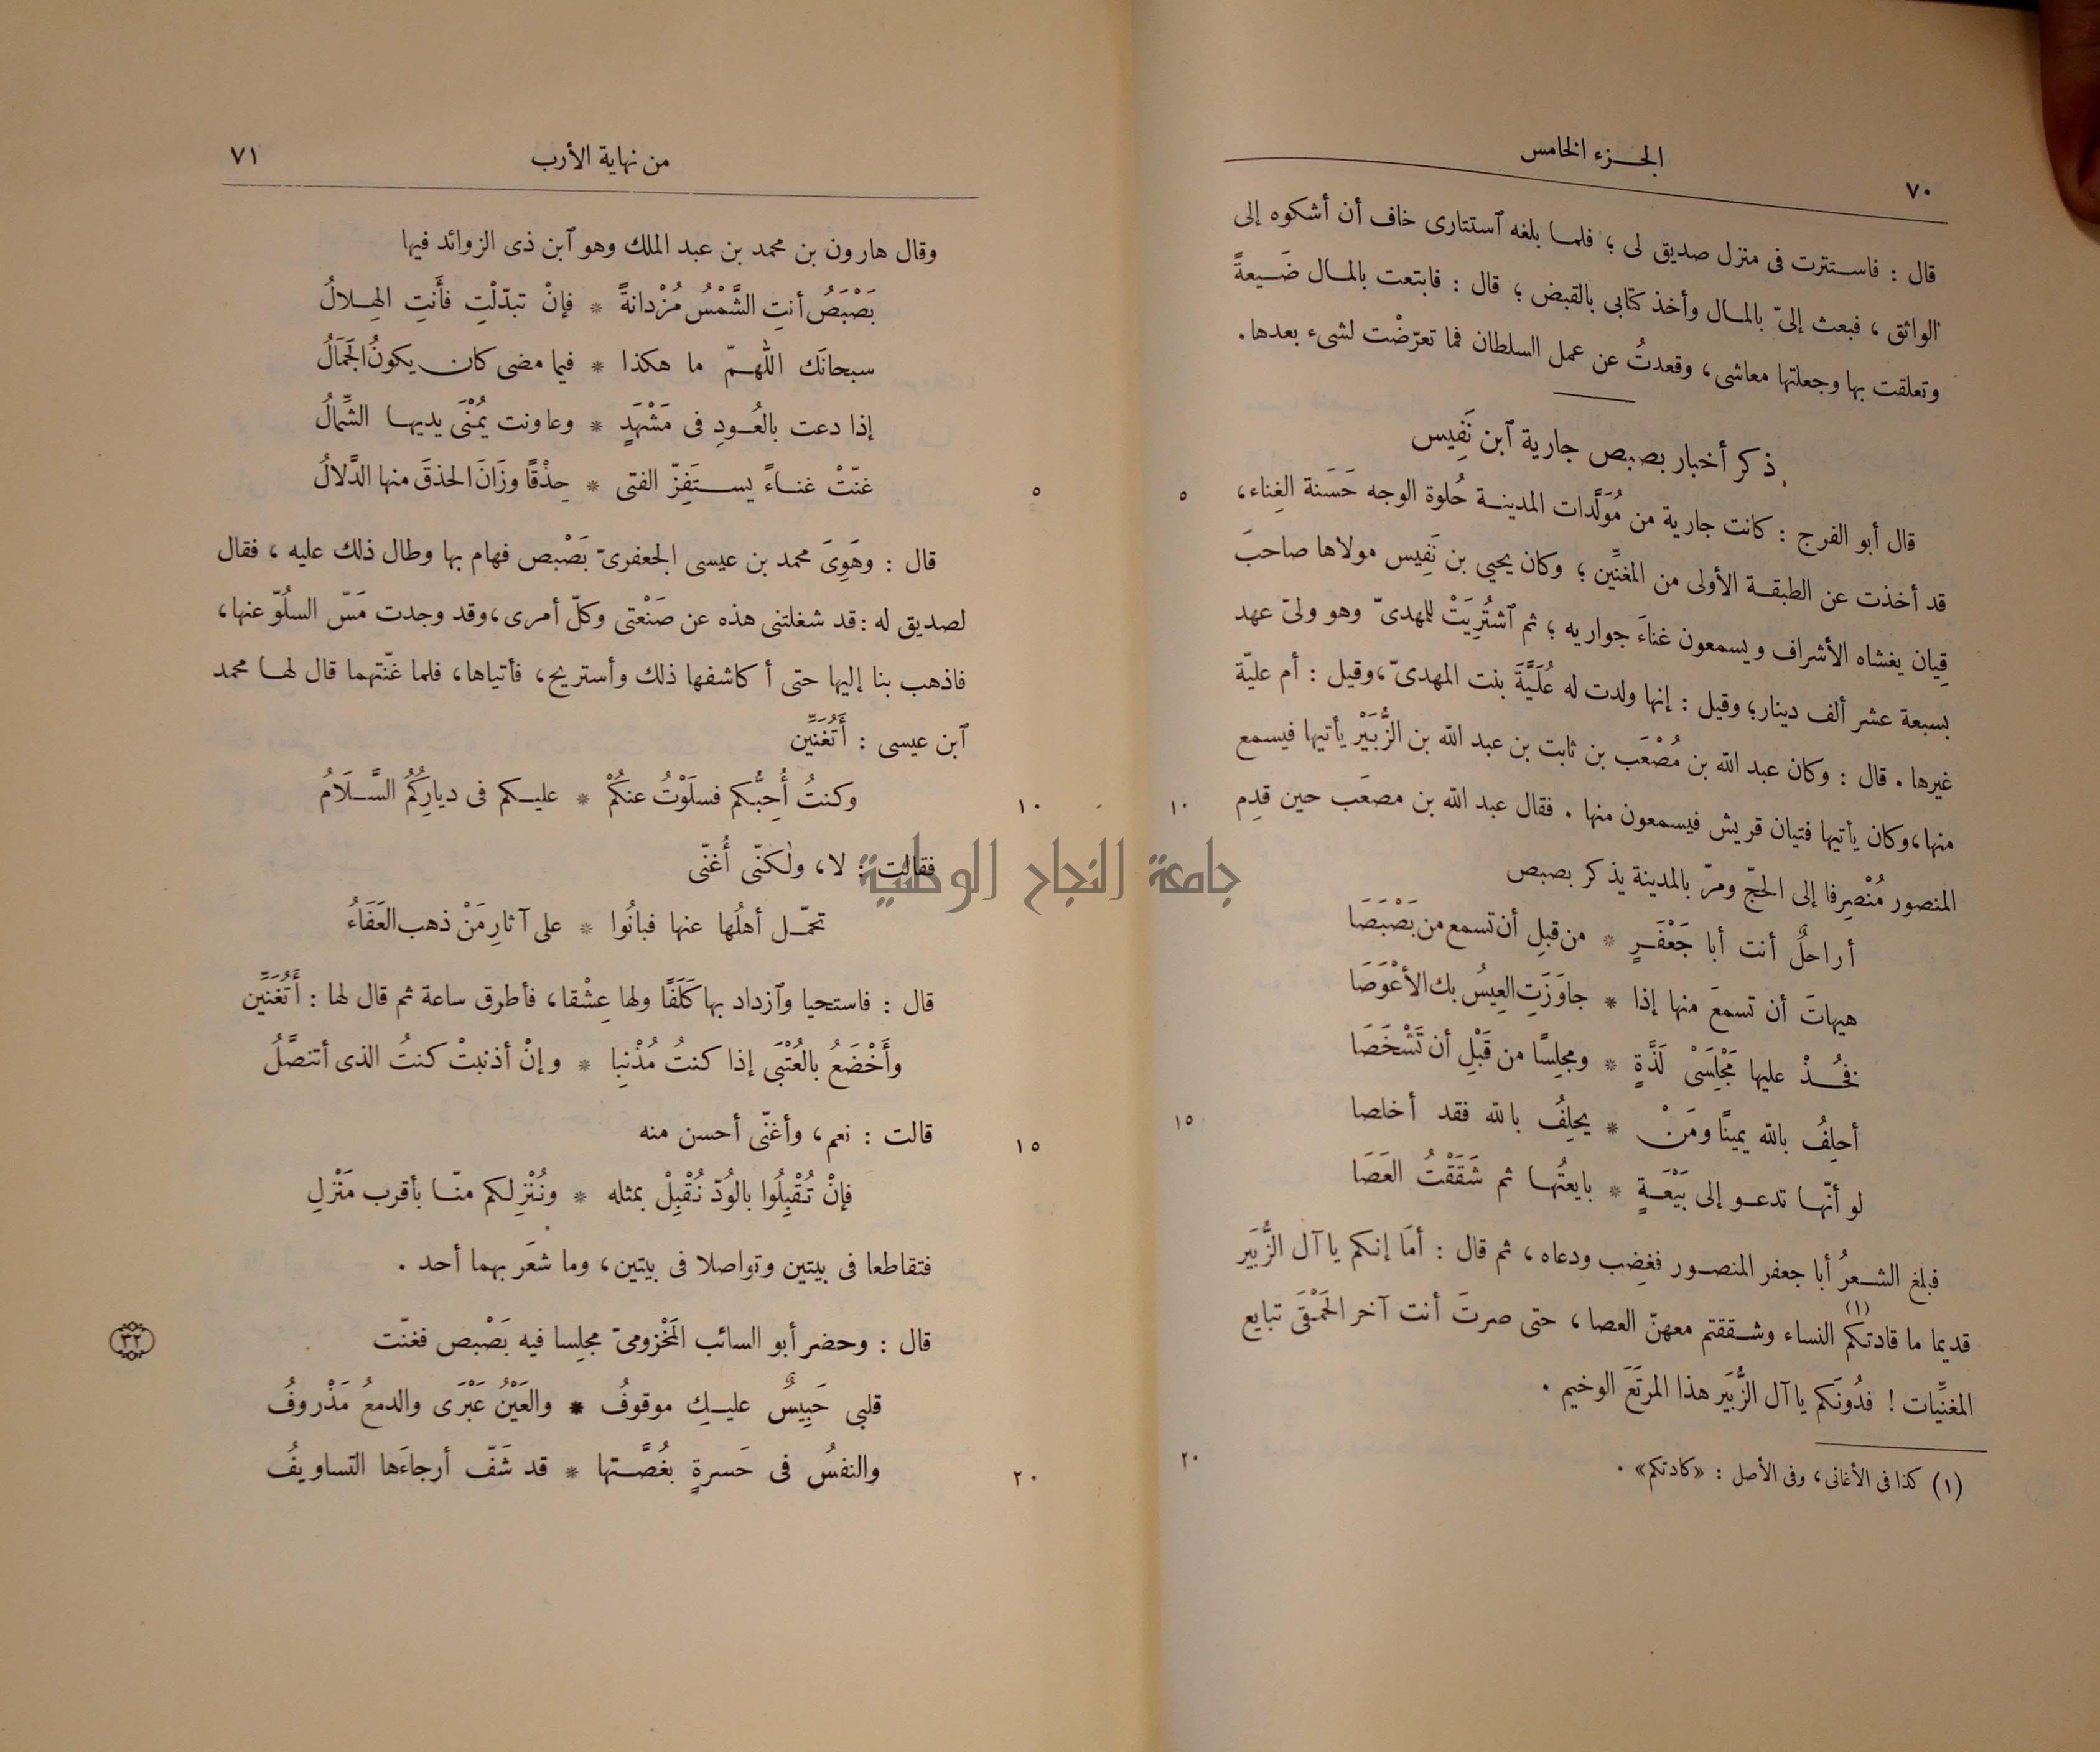 الجزء الخامس
٧٠
قال : فاستترت فى منزل صديق لى ؛ فلما بلغه ٱستتارى خاف أن أشكوه إلى
الواثق ، فبعث إلىّ بالمال وأخذ كتابى بالقبض ؛ قال : فابتعت بالمال ضَيعةً
وتعلقت بها وجعلتها معاشى ، وقعدتُ عن عمل السلطان فما تعرّضْت لشىء بعدها .
ذكر أخبار بصبص جارية ٱبن نَفِيس
قال أبو الفرج : كانت جارية من مُوَلَّدات المدينة حُلوة الوجه حَسَنة الغِناء ،
٥
قد أخذت عن الطبقة الأولى من المغنِّين ؛ وكان يحيى بن نَفِيس مولاها صاحبَ
قِيان يغشاه الأشراف ويسمعون غناءَ جواريه ؛ ثم ٱشتُرِيَتْ للمهدىّ وهو ولىّ عهد
بسبعة عشر ألف دينار؛ وقيل : إنها ولدت له عُلَيَّةَ بنت المهدىّ ، وقيل : أم عليّة
غيرها . قال : وكان عبد الله بن مُصْعَب بن ثابت بن عبد الله بن الزُّبَيْر يأتيها فيسمع
منها ، وكان يأتيها فتيان قريش فيسمعون منها . فقال عبد الله بن مصعَب حين قدِم
١٠
المنصور مُنْصِرِفا إلى الحجّ ومرّ بالمدينة يذكر بصبص
أراحلٌ أنت أبا جَعْفَرٍ * من قبلِ أن تسمع من بَصْبَصَا
هيهاتَ أن تسمعَ منها إذا * جاوَزَتِ العِيسُ بك الأعْوَصَا
فخُذْ عليها مَجْلِسَىْ لَذَّةٍ * ومجلِسًا من قَبْلِ أن تَشْخَصَا
أحلِفُ بالله يمينًا ومَنْ * يحلِفُ بالله فقد أخلصا
١٥
لو أنّها تدعو إلى بَيْعَةٍ * بايعتُها ثم شَقَقْتُ العَصَا
فبلغ الشعرُ أبا جعفر المنصور فغضِب ودعاه ، ثم قال : أمَا إنكم يا آل الزُّبَير
قديما ما قادتكم (١) النساء وشققتم معهنّ العصا ، حتى صرتَ أنت آخر الحَمْقَى تبايع
المغنِّيات ! فدُونَكم يا آل الزُّبَير هذا المرتَعَ الوخيم .
٢٠
(١) كذا فى الأغانى ، وفى الأصل : «كادتكم» .
من نهاية الأرب
٧١
وقال هارون بن محمد بن عبد الملك وهو ٱبن ذى الزوائد فيها
بَصْبَصُ أنتِ الشَّمْسُ مُزْدانةً * فإنْ تبدّلْتِ فأَنتِ الهِلالُ
سبحانَك اللهمّ ما هكذا * فيما مضى كان يكونُ الجَمَالُ
إذا دعت بالعُودِ فى مَشْهَدٍ * وعاونت يُمْنَى يديها الشِّمالُ
غنّتْ غناءً يستَفِزّ الفتى * حِذْقًا وزَانَ الحذقَ منها الدَّلالُ
٥
قال : وهَوِىَ محمد بن عيسى الجعفرىّ بَصْبص فهام بها وطال ذلك عليه ، فقال
لصديق له : قد شغلتنى هذه عن صَنْعتى وكلّ أمرى ، وقد وجدت مَسّ السلُوّ عنها ،
فاذهب بنا إليها حتى أكاشفها ذلك وأستريح ، فأتياها ، فلما غنّتهما قال لها محمد
ٱبن عيسى : أَتُغَنِّين
وكنتُ أُحِبُّكم فسلَوْتُ عنكُمْ * عليكم فى ديارِكُمُ السَّلَامُ
١٠
فقالت : لا ، ولٰكنّى أُغنّى
تحمّل أهلُها عنها فبانُوا * على آثارِ مَنْ ذهب العَفَاءُ
قال : فاستحيا وٱزداد بها كَلَفًا ولها عِشْقا ، فأطرق ساعة ثم قال لها : أَتُغَنِّين
وأَخْضَعُ بالعُتْبَى إذا كنتُ مُذْنِبا * وإنْ أذنبتْ كنتُ الذى أتنصَّلُ
قالت : نعم ، وأغنّى أحسن منه
١٥
فإنْ تُقْبِلُوا بالوُدّ نُقْبِلْ بمثله * ونُنْزِلكم منّا بأقرب مَنْزلِ
فتقاطعا فى بيتين وتواصلا فى بيتين ، وما شعَر بهما أحد .
قال : وحضر أبو السائب المَخْزومىّ مجلِسا فيه بَصْبص فغنّت
٣٢
قلبى حَبِيسٌ عليكِ موقوفُ * والعَيْنُ عَبْرَى والدمعُ مَذْروفُ
والنفسُ فى حَسرةٍ بغُصَّتها * قد شَفّ أرجاءَها التساويفُ
٢٠
جامعة النجاح الوطنية